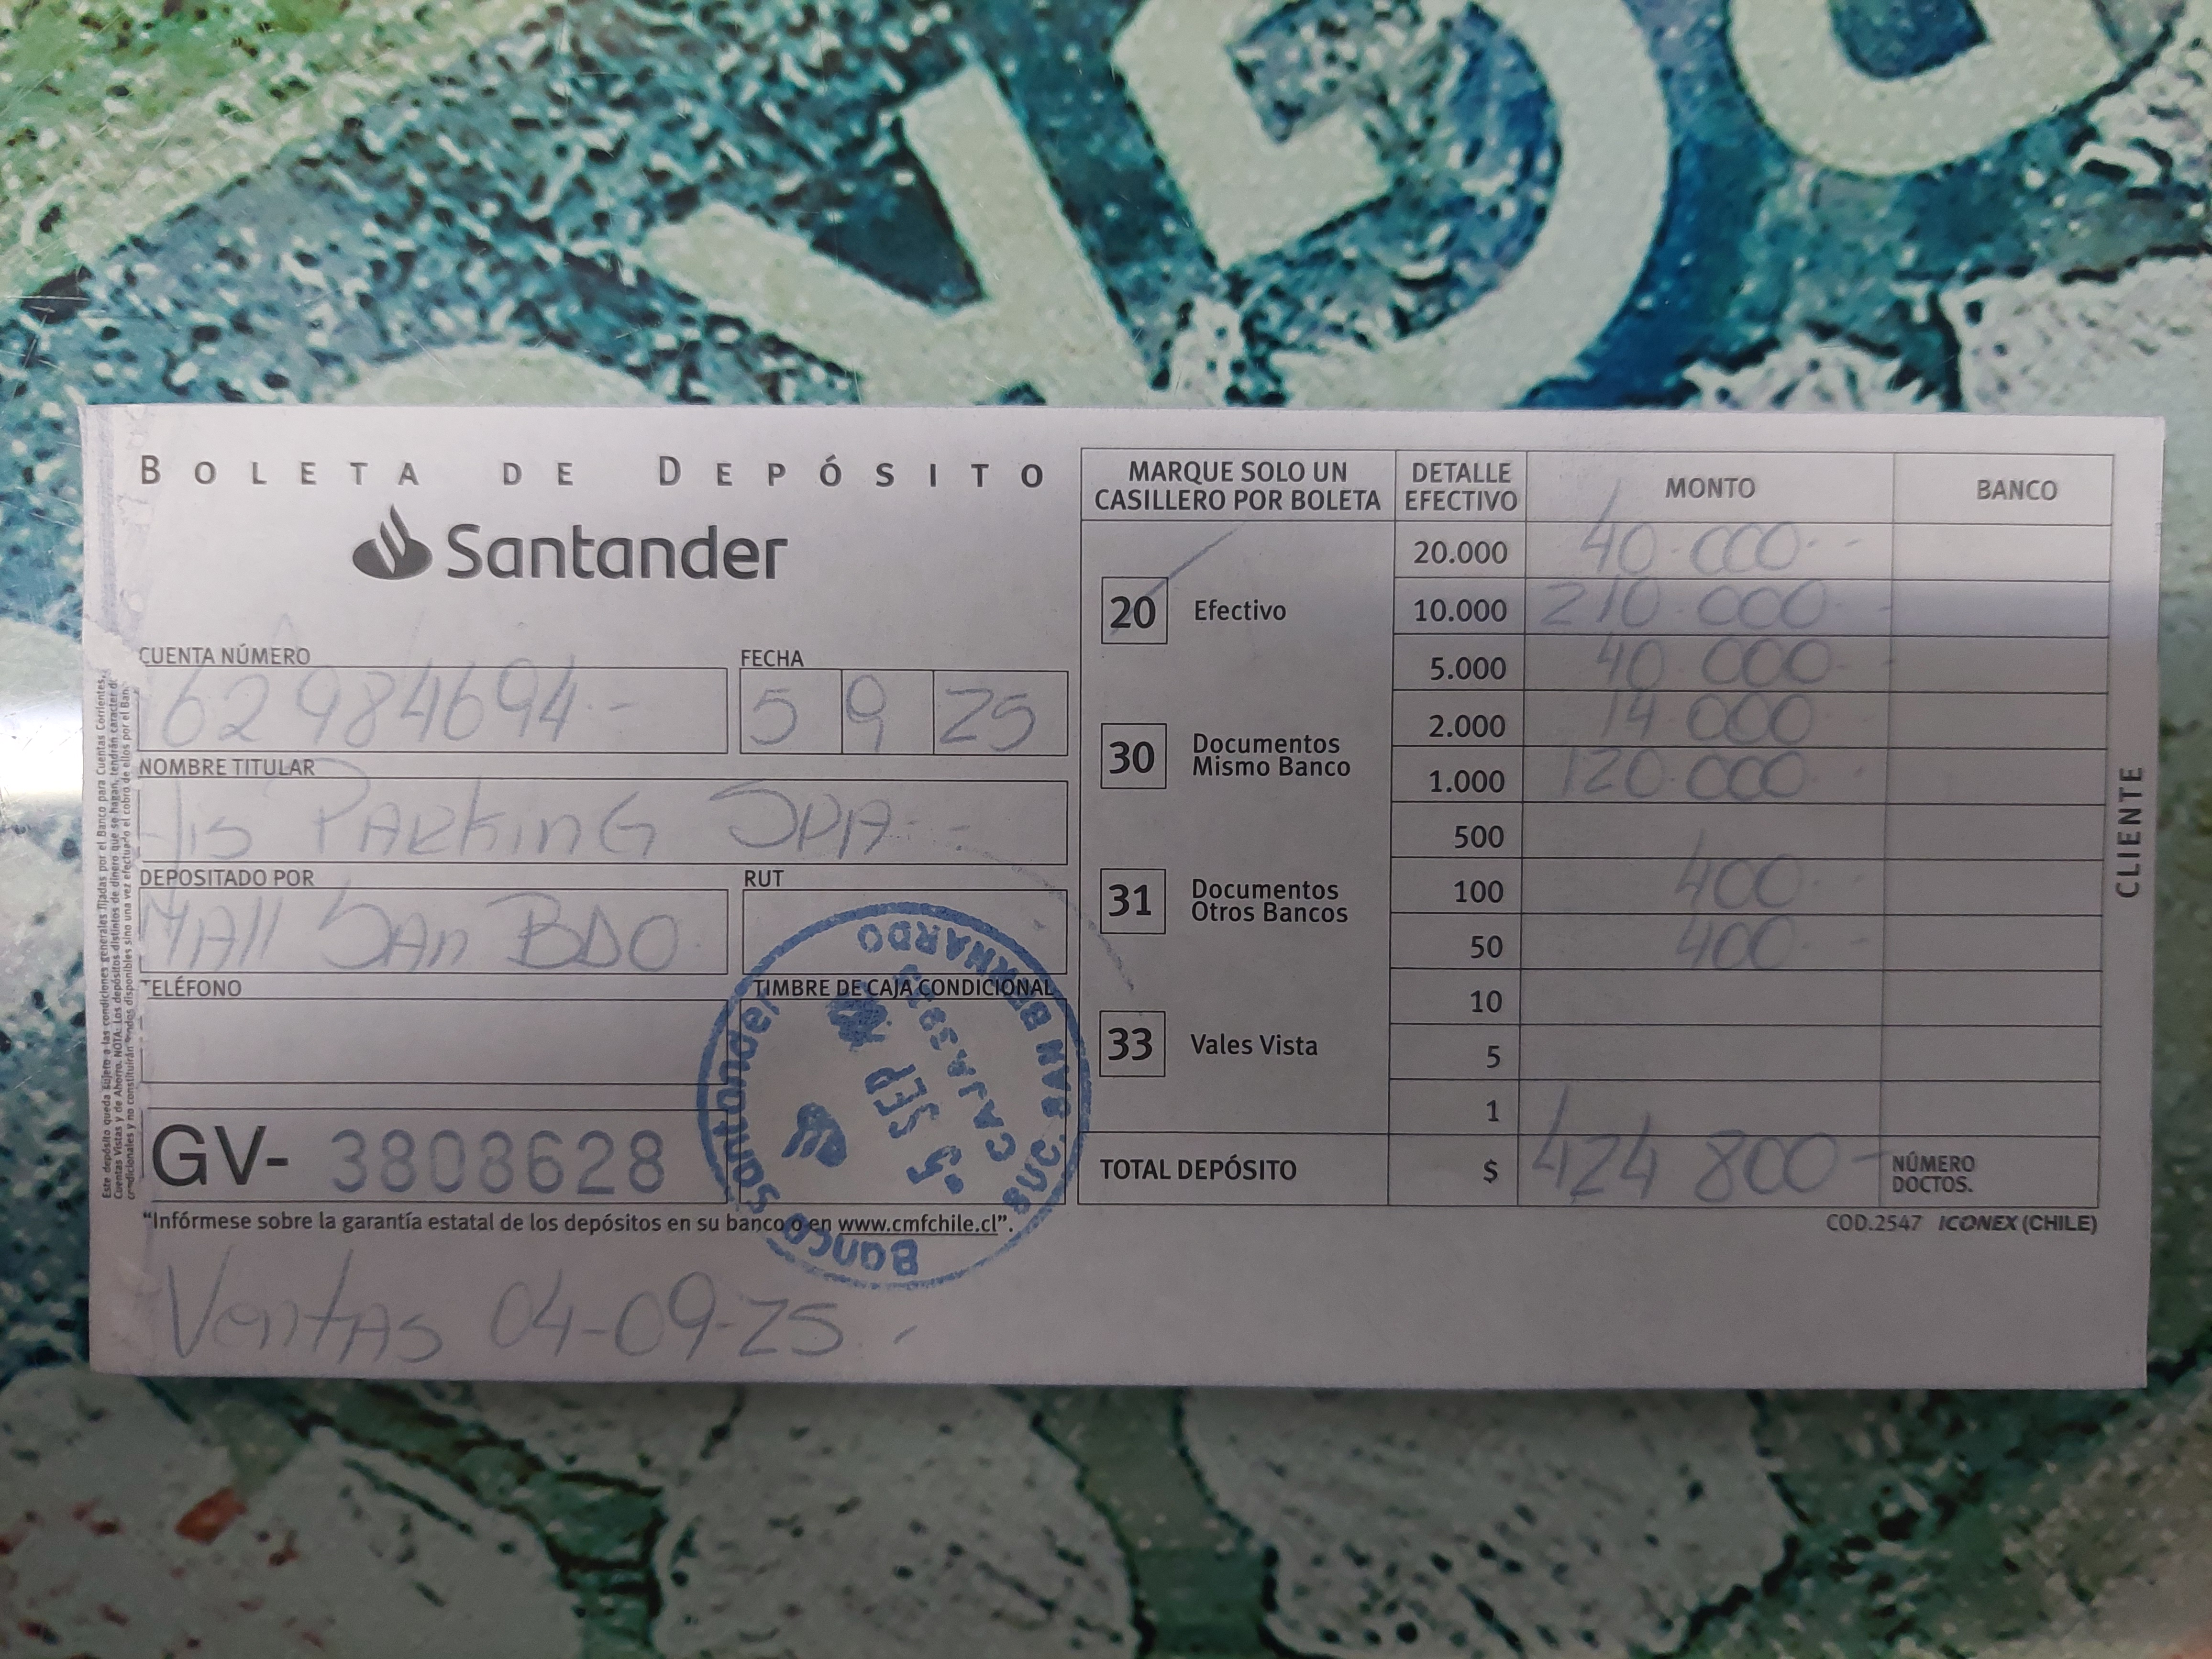 BOLETA DE DEPÓSITO
Santander
CUENTA NÚMERO
62984694.-
FECHA
5 9 25
NOMBRE TITULAR
Jis Parking SPA.-
DEPOSITADO POR
Mall San BDO
RUT
TELÉFONO
TIMBRE DE CAJA CONDICIONAL
GV- 3808628
"Infórmese sobre la garantía estatal de los depósitos en su banco o en www.cmfchile.cl".
Ventas 04-09-25.-
Banco Santander
SUC. SAN BERNARDO
-5 SEP
MARQUE SOLO UN CASILLERO POR BOLETA
20 Efectivo
30 Documentos Mismo Banco
31 Documentos Otros Bancos
33 Vales Vista
DETALLE EFECTIVO MONTO BANCO
20.000 40.000.-
10.000 210.000.-
5.000 40.000.-
2.000 14.000
1.000 120.000.-
500
100 400.-
50 400.-
10
5
1
TOTAL DEPÓSITO $ 424.800.-
NÚMERO DOCTOS.
COD.2547 ICONEX (CHILE)
CLIENTE